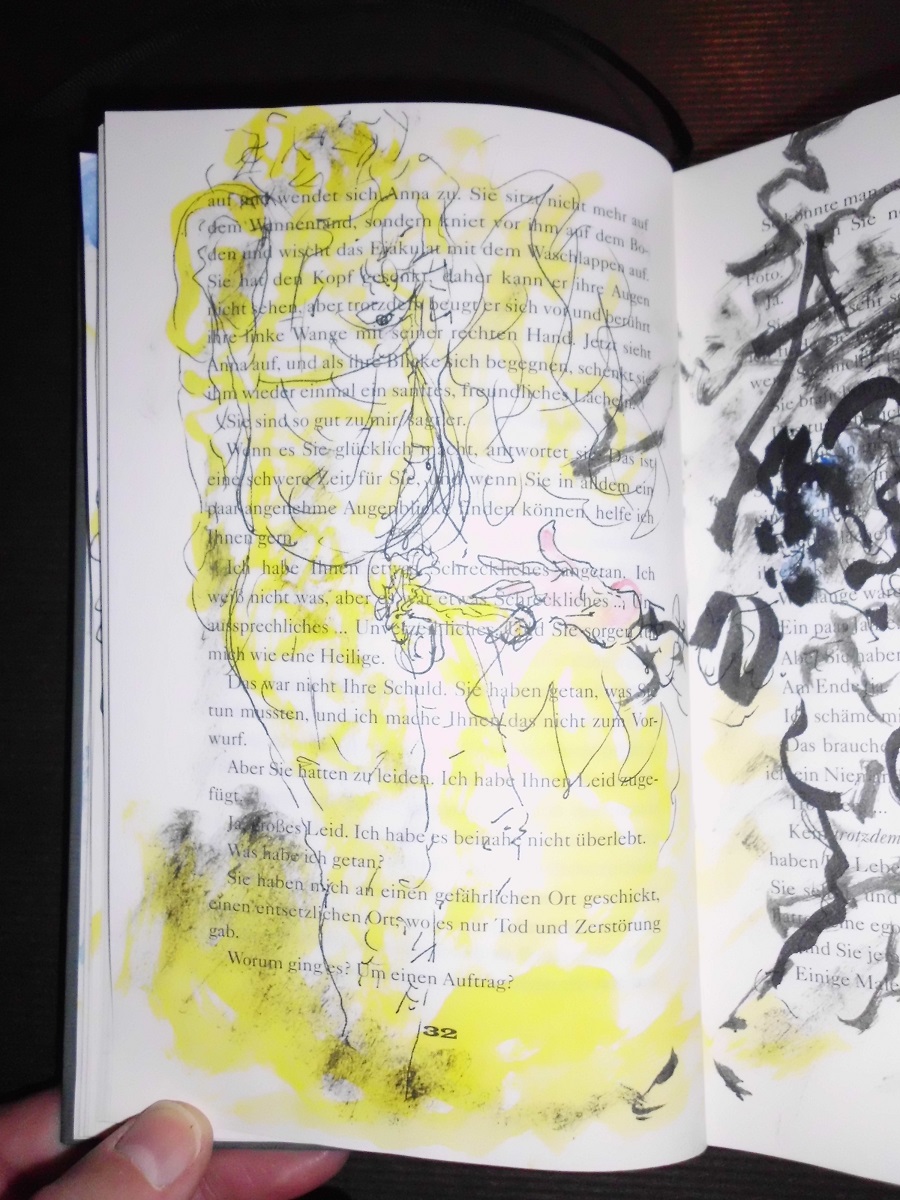 auf und wendet sich Anna zu. Sie sitzt nicht mehr auf
dem Wannenrand, sondern kniet vor ihm auf dem Bo-
den und wischt das Ejakulat mit dem Waschlappen auf.
Sie hat den Kopf gesenkt, daher kann er ihre Augen
nicht sehen, aber trotzdem beugt er sich vor und berührt
ihre linke Wange mit seiner rechten Hand. Jetzt sieht
Anna auf, und als ihre Blicke sich begegnen, schenkt sie
ihm wieder einmal ein sanftes, freundliches Lächeln.
Sie sind so gut zu mir, sagt er.
Wenn es Sie glücklich macht, antwortet sie. Das ist
eine schwere Zeit für Sie, und wenn Sie in alldem ein
paar angenehme Augenblicke finden können, helfe ich
Ihnen gern.
Ich habe Ihnen etwas Schreckliches angetan. Ich
weiß nicht was, aber es war etwas Schreckliches ... Un-
aussprechliches ... Unverzeihliches. Und Sie sorgen für
mich wie eine Heilige.
Das war nicht Ihre Schuld. Sie haben getan, was Sie
tun mussten, und ich mache Ihnen das nicht zum Vor-
wurf.
Aber Sie hatten zu leiden. Ich habe Ihnen Leid zuge-
fügt.
Ja, großes Leid. Ich habe es beinahe nicht überlebt.
Was habe ich getan?
Sie haben mich an einen gefährlichen Ort geschickt,
einen entsetzlichen Ort, wo es nur Tod und Zerstörung
gab.
Worum ging es? Um einen Auftrag?
32
könnte man
Sie
Foto.
Ja.
Sie
Ein paar
Aber Sie haben
Am Ende ja.
Ich schäme
Das brauche
ein
Kein trotzdem
haben Leb
Sie und
und Sie je
Einige Male